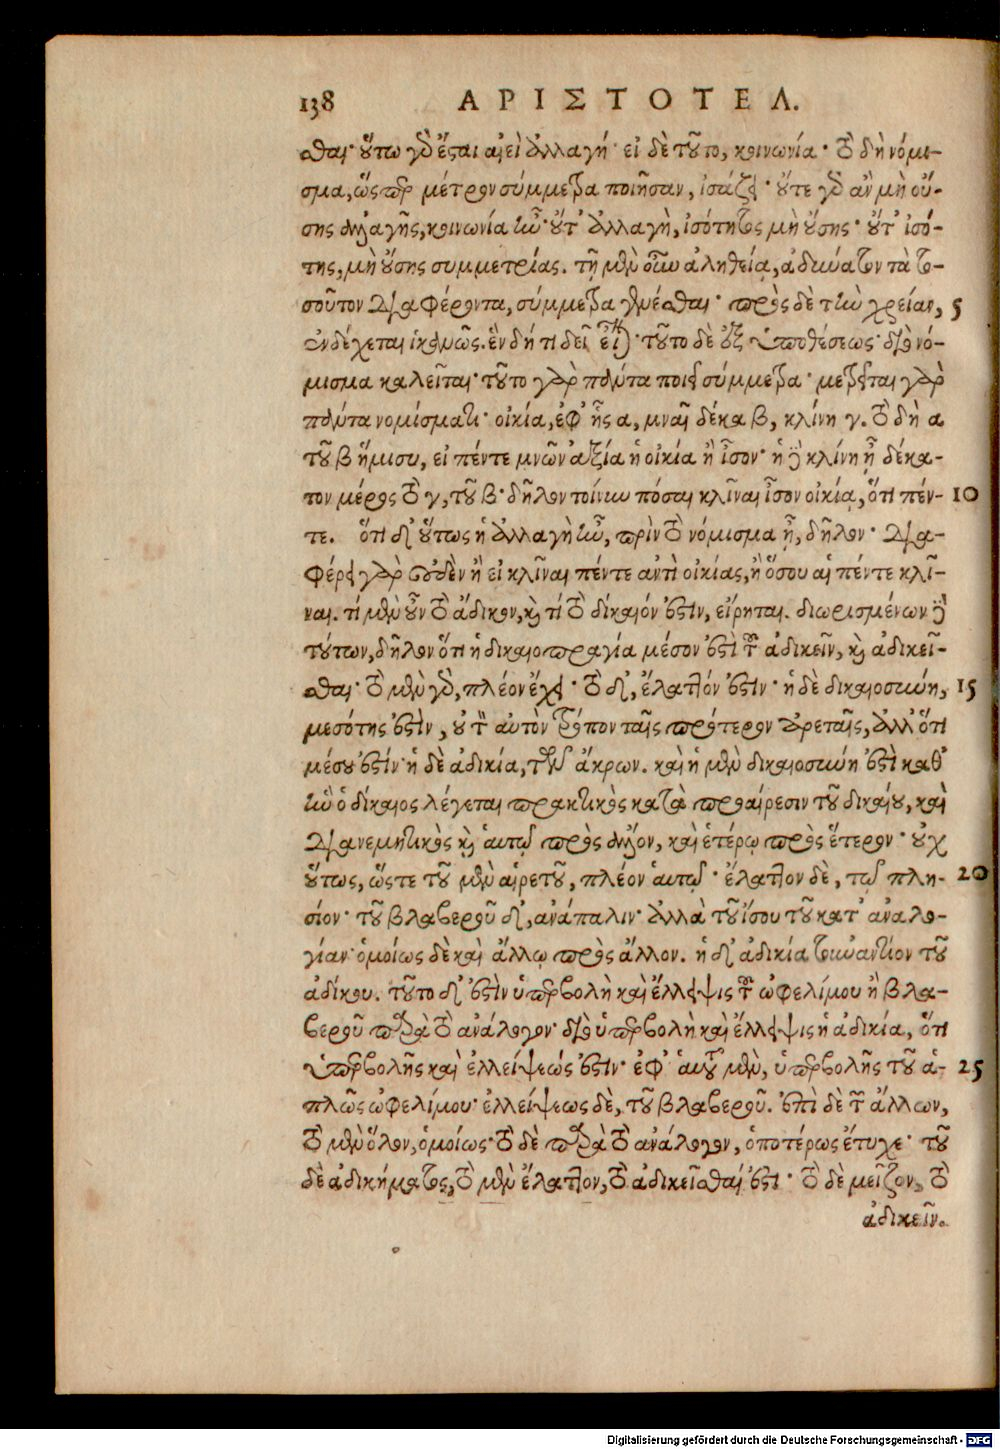 138 ΑΡΙΣΤΟΤΕΛ.
σθαι· οὕτω γὸ ἔσται αἰεὶ ἀλλαγή· εἰ δὲ τοῦτο, κοινωνία· τὸ δὴ νόμι-
σμα, ὥσπερ μέτρον σύμμετρα ποιῆσαν, ἰσάζει· οὔτε γὸ ἂν μὴ οὔ-
σης ἀλλαγῆς, κοινωνία ἦν· οὔτ' ἀλλαγὴ, ἰσότητος μὴ οὔσης· οὔτ' ἰσό-
της, μὴ οὔσης συμμετρίας. τῇ μὲν οὖν ἀληθείᾳ, ἀδύνατον τὰ το-
σοῦτον διαφέροντα, σύμμετρα γενέσθαι· πρὸς δὲ τὴν χρείαν, 5
ἐνδέχεται ἱκανῶς. ἓν δή τι δεῖ εἶναι· τοῦτο δὲ ἐξ ὑποθέσεως· διὸ νό-
μισμα καλεῖται· τοῦτο γὰρ πάντα ποιεῖ σύμμετρα· μετρεῖται γὰρ
πάντα νομίσματι· οἰκία, ἐφ' ἧς α, μναῖ δέκα β, κλίνη γ. τὸ δὴ α
τοῦ β ἥμισυ, εἰ πέντε μνῶν ἀξία ἡ οἰκία ἢ ἶσον· ἡ δὲ κλίνη ᾖ δέκα-
τον μέρος τὸ γ, τοῦ β· δῆλον τοίνυν πόσαι κλῖναι ἶσον οἰκίᾳ, ὅτι πέν- 10
τε. ὅτι δ' οὕτως ἡ ἀλλαγὴ ἦν, πρὶν τὸ νόμισμα ᾖ, δῆλον· δια-
φέρει γὰρ οὐδὲν ἢ εἰ κλῖναι πέντε ἀντὶ οἰκίας, ἢ ὅσου αἱ πέντε κλῖ-
ναι. τί μὲν οὖν τὸ ἄδικον, καὶ τί τὸ δίκαιόν ἐστιν, εἴρηται. διωρισμένων δὲ
τούτων, δῆλον ὅτι ἡ δικαιοπραγία μέσον ἐστὶ τοῦ ἀδικεῖν, καὶ ἀδικεῖ-
σθαι· τὸ μὲν γὸ, πλέον ἔχει· τὸ δ', ἔλαττόν ἐστιν· ἡ δὲ δικαιοσύνη, 15
μεσότης ἐστὶν, οὐ τὸν αὐτὸν τρόπον ταῖς πρότερον ἀρεταῖς, ἀλλ' ὅτι
μέσου ἐστίν· ἡ δὲ ἀδικία, τῶν ἄκρων. καὶ ἡ μὲν δικαιοσύνη ἐστὶ καθ'
ἣν ὁ δίκαιος λέγεται πρακτικὸς κατὰ προαίρεσιν τοῦ δικαίου, καὶ
διανεμητικὸς καὶ ἑαυτῷ πρὸς ἄλλον, καὶ ἑτέρῳ πρὸς ἕτερον· οὐχ
οὕτως, ὥστε τοῦ μὲν αἱρετοῦ, πλέον ἑαυτῷ· ἔλαττον δὲ, τῷ πλη- 20
σίον· τοῦ βλαβεροῦ δ', ἀνάπαλιν· ἀλλὰ τοῦ ἴσου τοῦ κατ' ἀναλο-
γίαν· ὁμοίως δὲ καὶ ἄλλῳ πρὸς ἄλλον. ἡ δ' ἀδικία τοὐναντίον τοῦ
ἀδίκου. τοῦτο δ' ἐστὶν ὑπερβολὴ καὶ ἔλλειψις τοῦ ὠφελίμου ἢ βλα-
βεροῦ παρὰ τὸ ἀνάλογον· διὸ ὑπερβολὴ καὶ ἔλλειψις ἡ ἀδικία, ὅτι
ὑπερβολῆς καὶ ἐλλείψεώς ἐστιν· ἐφ' ἑαυτοῦ μὲν, ὑπερβολῆς τοῦ ἁ- 25
πλῶς ὠφελίμου· ἐλλείψεως δὲ, τοῦ βλαβεροῦ. ἐπὶ δὲ τῶν ἄλλων,
τὸ μὲν ὅλον, ὁμοίως· τὸ δὲ παρὰ τὸ ἀνάλογον, ὁποτέρως ἔτυχε· τοῦ
δὲ ἀδικήματος, τὸ μὲν ἔλαττον, τὸ ἀδικεῖσθαί ἐστι· τὸ δὲ μεῖζον, τὸ
ἀδικεῖν.
Digitalisierung gefördert durch die Deutsche Forschungsgemeinschaft - DFG